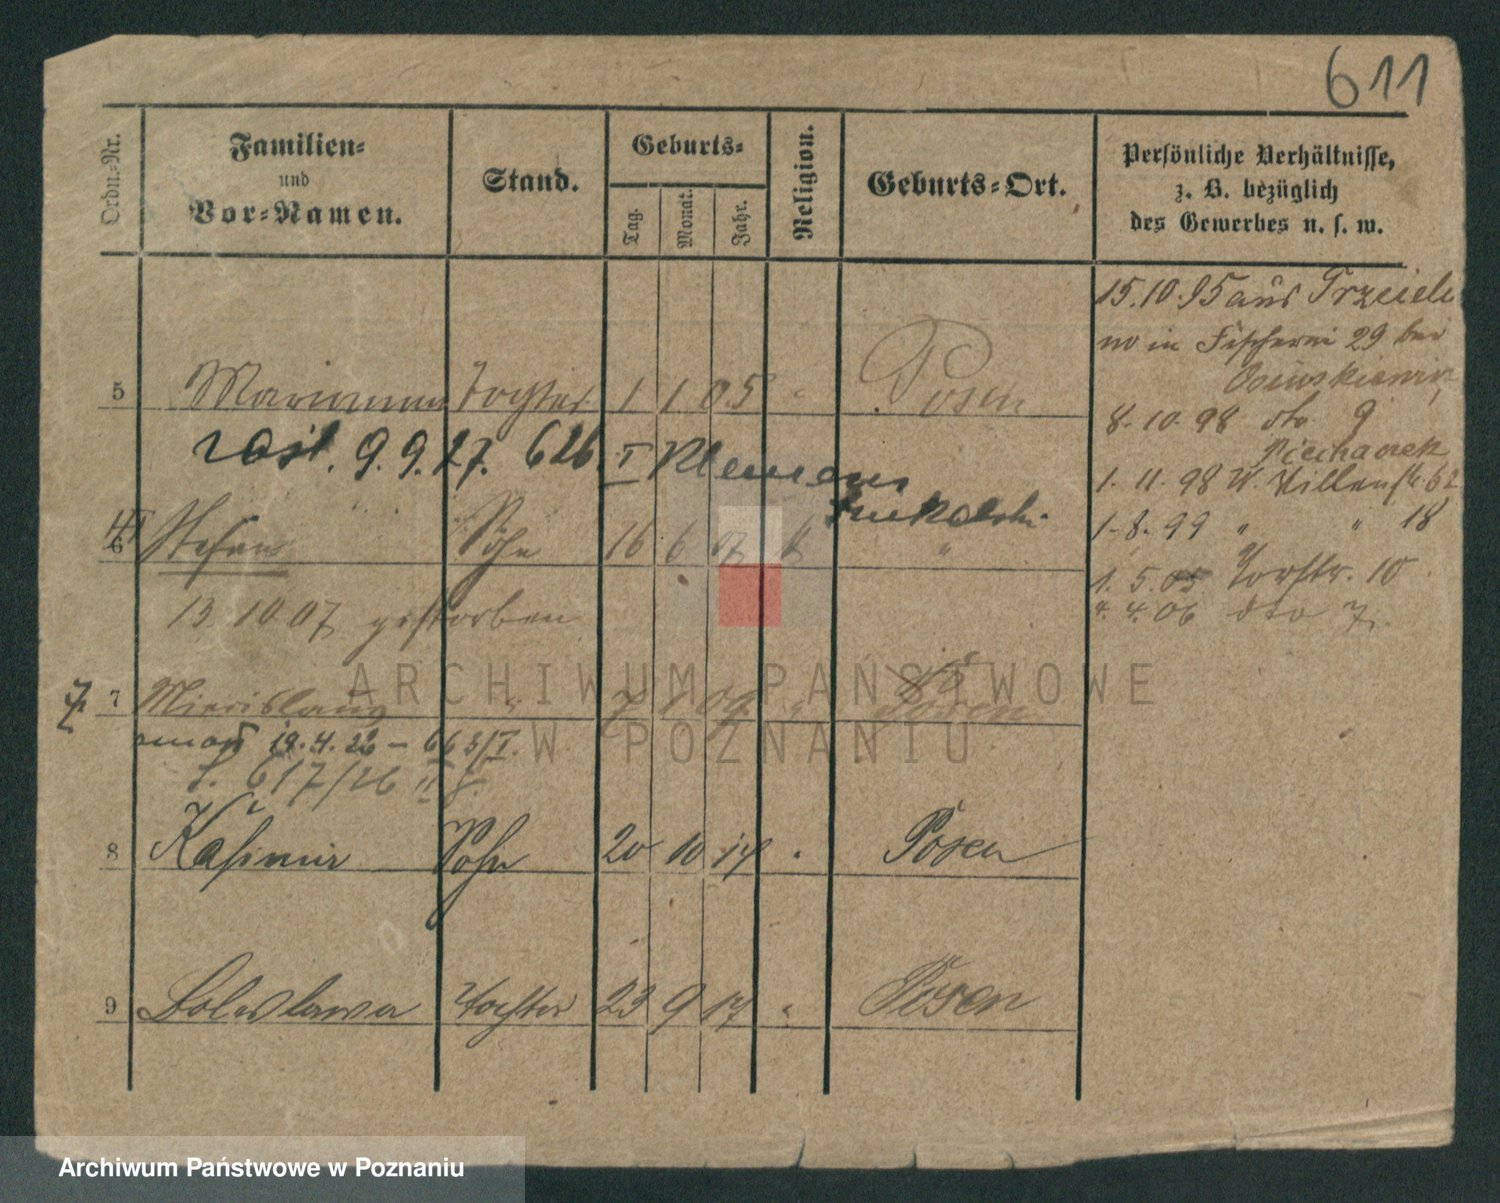 611
Ordn.-Nr.
Familien-
und
Vor-Namen.
Stand.
Geburts-
Tag.
Monat.
Jahr.
Religion.
Geburts-Ort.
Persönliche Verhältnisse,
z. B. bezüglich
des Gewerbes u. s. w.
15.10.95 aus
in Fischerei 29 bei
5 Marianna Tochter 1 1 05 " Posen
8.10.98 dto 9
9.9.27. 626. I Klemens
1.11.98 W. 62
1.8.99 " " 18
6 Stefan Sohn 16 6 07 k "
1.5.05 Torstr. 10
13.10.07 gestorben
4.4.06 dto 7.
7 7 " 7 1 09 " Posen
19.4.26 - 663/I.
617/26 II
8 Kasimir Sohn 20 10 14 " Posen
9 Boleslawa Tochter 23 9 17 " Posen
ARCHIWUM PAŃSTWOWE
W POZNANIU
Archiwum Państwowe w Poznaniu